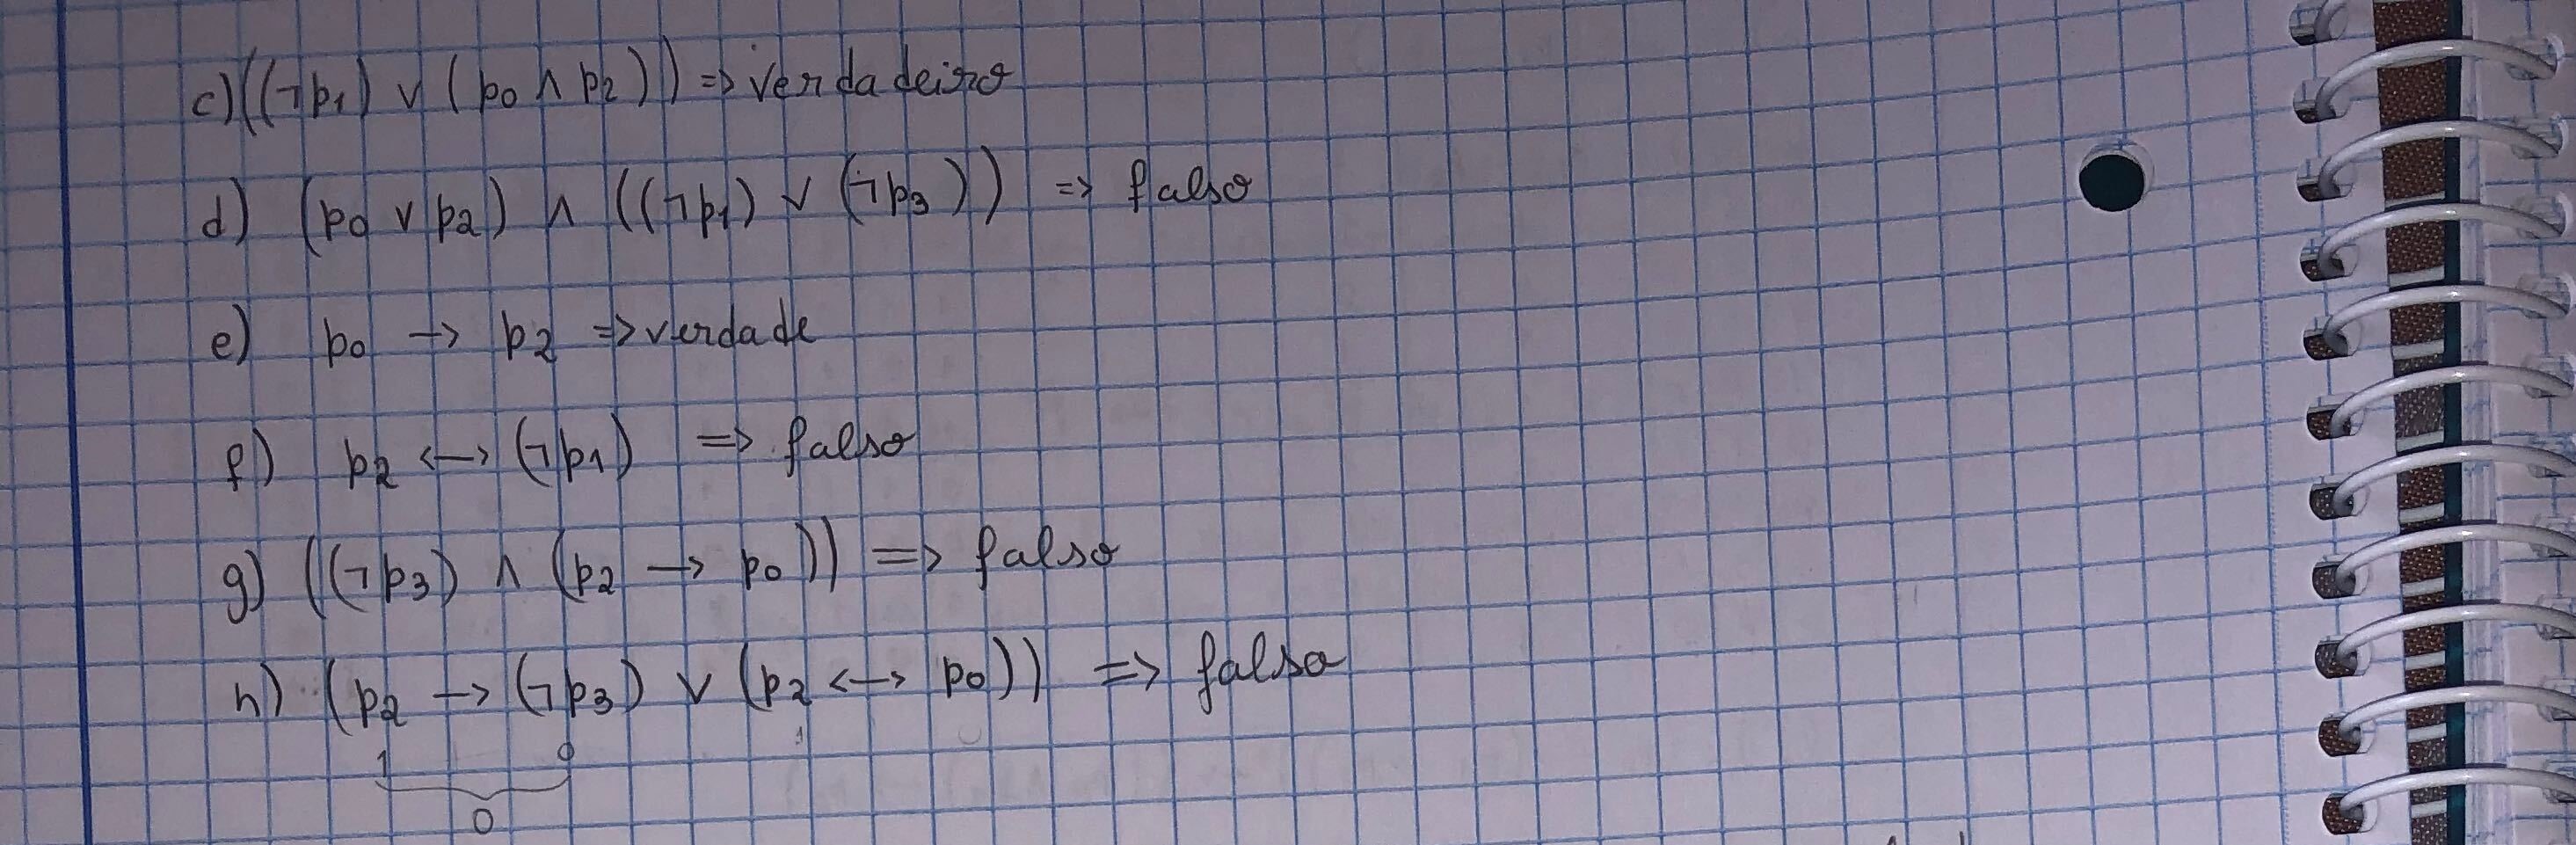 c) ((¬p1) ∨ (p0 ∧ p2)) => verdadeiro
d) (p0 ∨ p2) ∧ ((¬p1) ∨ (¬p3)) => falso
e) p0 → p2 => verdade
f) p2 <-> (¬p1) => falso
g) ((¬p3) ∧ (p2 → p0)) => falso
h) (p2 → (¬p3) ∨ (p2 <-> p0)) => falso
1 0 1 0
0